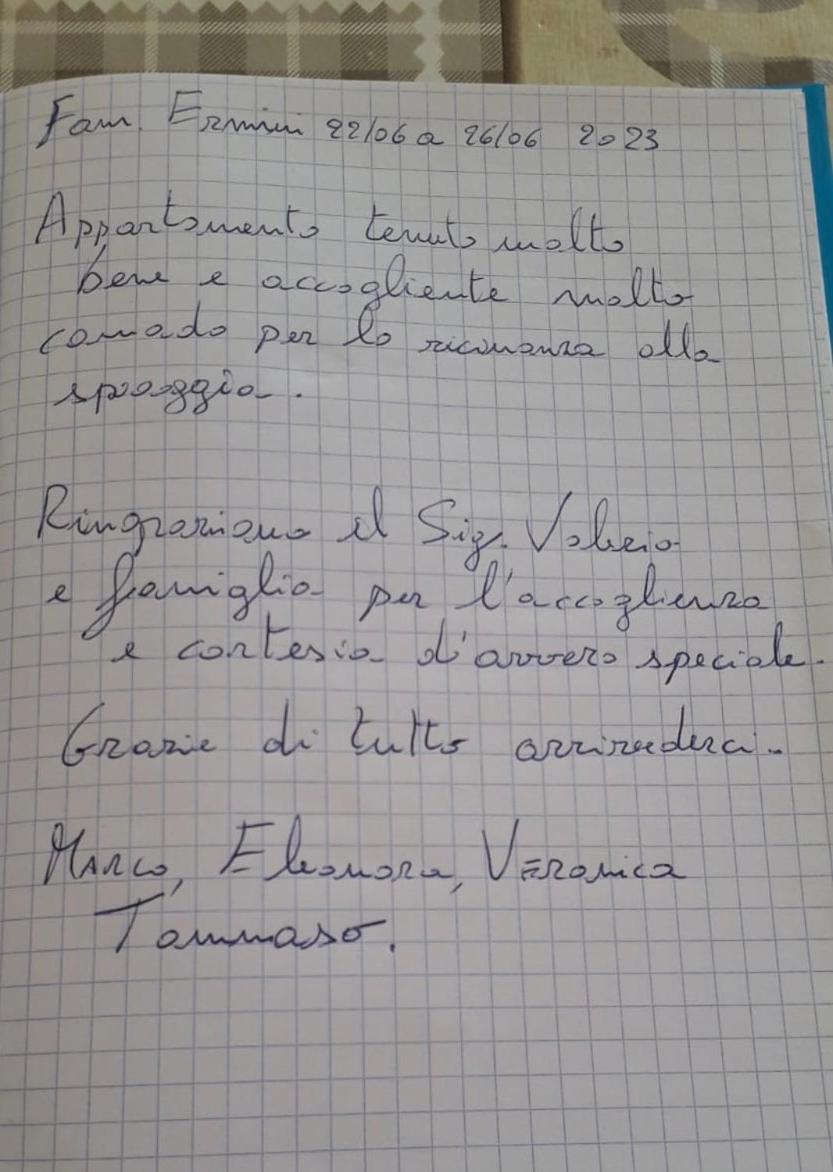 Fam. Ermini 22/06 a 26/06 2023
Appartamento tenuto molto
bene e accogliente molto
comodo per la vicinanza alla
spiaggia.
Ringraziamo il Sig. Valerio
e famiglia per l'accoglienza
e cortesia d'avvero speciale.
Grazie di tutto arrivederci.
Marco, Eleonora, Veronica
Tommaso.